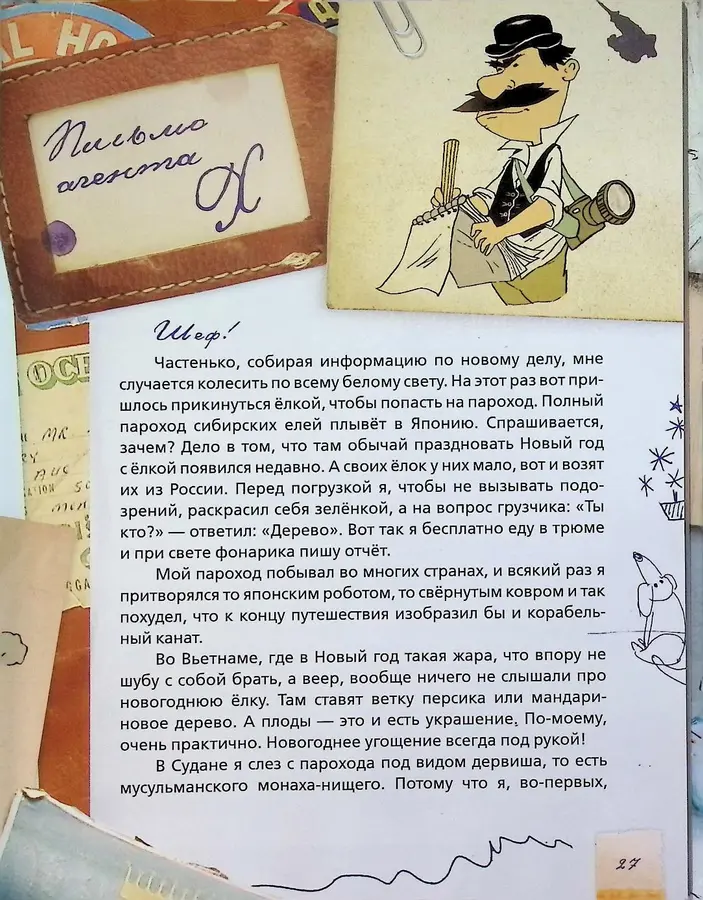 AL HO
Письмо
агента
X
30
30
30
Шеф!
Частенько, собирая информацию по новому делу, мне
случается колесить по всему белому свету. На этот раз вот при-
шлось прикинуться ёлкой, чтобы попасть на пароход. Полный
пароход сибирских елей плывёт в Японию. Спрашивается,
зачем? Дело в том, что там обычай праздновать Новый год
с ёлкой появился недавно. А своих ёлок у них мало, вот и возят
их из России. Перед погрузкой я, чтобы не вызывать подо-
зрений, раскрасил себя зелёнкой, а на вопрос грузчика: «Ты
кто?» — ответил: «Дерево». Вот так я бесплатно еду в трюме
и при свете фонарика пишу отчёт.
Мой пароход побывал во многих странах, и всякий раз я
притворялся то японским роботом, то свёрнутым ковром и так
похудел, что к концу путешествия изобразил бы и корабель-
ный канат.
Во Вьетнаме, где в Новый год такая жара, что впору не
шубу с собой брать, а веер, вообще ничего не слышали про
новогоднюю ёлку. Там ставят ветку персика или мандари-
новое дерево. А плоды — это и есть украшение. По-моему,
очень практично. Новогоднее угощение всегда под рукой!
В Судане я слез с парохода под видом дервиша, то есть
мусульманского монаха-нищего. Потому что я, во-первых,
27